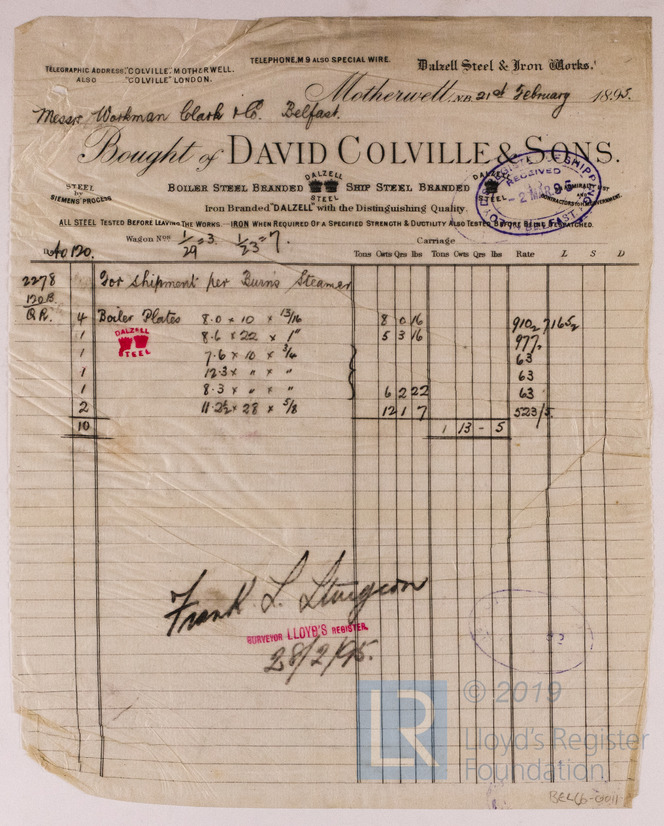 TELEPHONE, M 9 ALSO SPECIAL WIRE.
TELEGRAPHIC ADDRESS, "COLVILLE, MOTHERWELL.
ALSO "COLVILLE" LONDON.
Dalzell Steel & Iron Works.
Motherwell, N.B. 21st February 1895.
Messrs Workman Clark & Co. Belfast.
Bought of DAVID COLVILLE & SONS.
STEEL
by
SIEMENS' PROCESS
BOILER STEEL BRANDED DALZELL STEEL SHIP STEEL BRANDED DALZELL STEEL
Iron Branded "DALZELL" with the Distinguishing Quality
ADMIRALTY LIST
AND
CONTRACTORS TO H.M. GOVERNMENT.
RECEIVED
- 2 MAR 95
BELFAST
ALL STEEL TESTED BEFORE LEAVING THE WORKS.—IRON WHEN REQUIRED OF A SPECIFIED STRENGTH & DUCTILITY ALSO TESTED BEFORE BEING DESPATCHED.
Wagon Nos 1/29 = 3 1/23 = 7.
Carriage
120.
Tons Cwts Qrs lbs Tons Cwts Qrs lbs Rate L S D
2278 For shipment per Burns Steamer
120B.
QR. 4 Boiler Plates 8.0 x 10 x 13/16 8 0 16 910
1 8.6 x 22 x 1" 5 3 16 977
DALZELL
STEEL
1 7.6 x 10 x 3/4 63
1 12.3 x " x " 63
1 8.3 x " x " 6 2 22 63
2 11.2½ x 28 x 5/8 12 1 7 523/5
10 1 13 - 5
Frank L. Sturgeon
SURVEYOR LLOYD'S REGISTER.
28/2/95.
LR © 2019
Lloyd's Register
Foundation
BEL6-0011